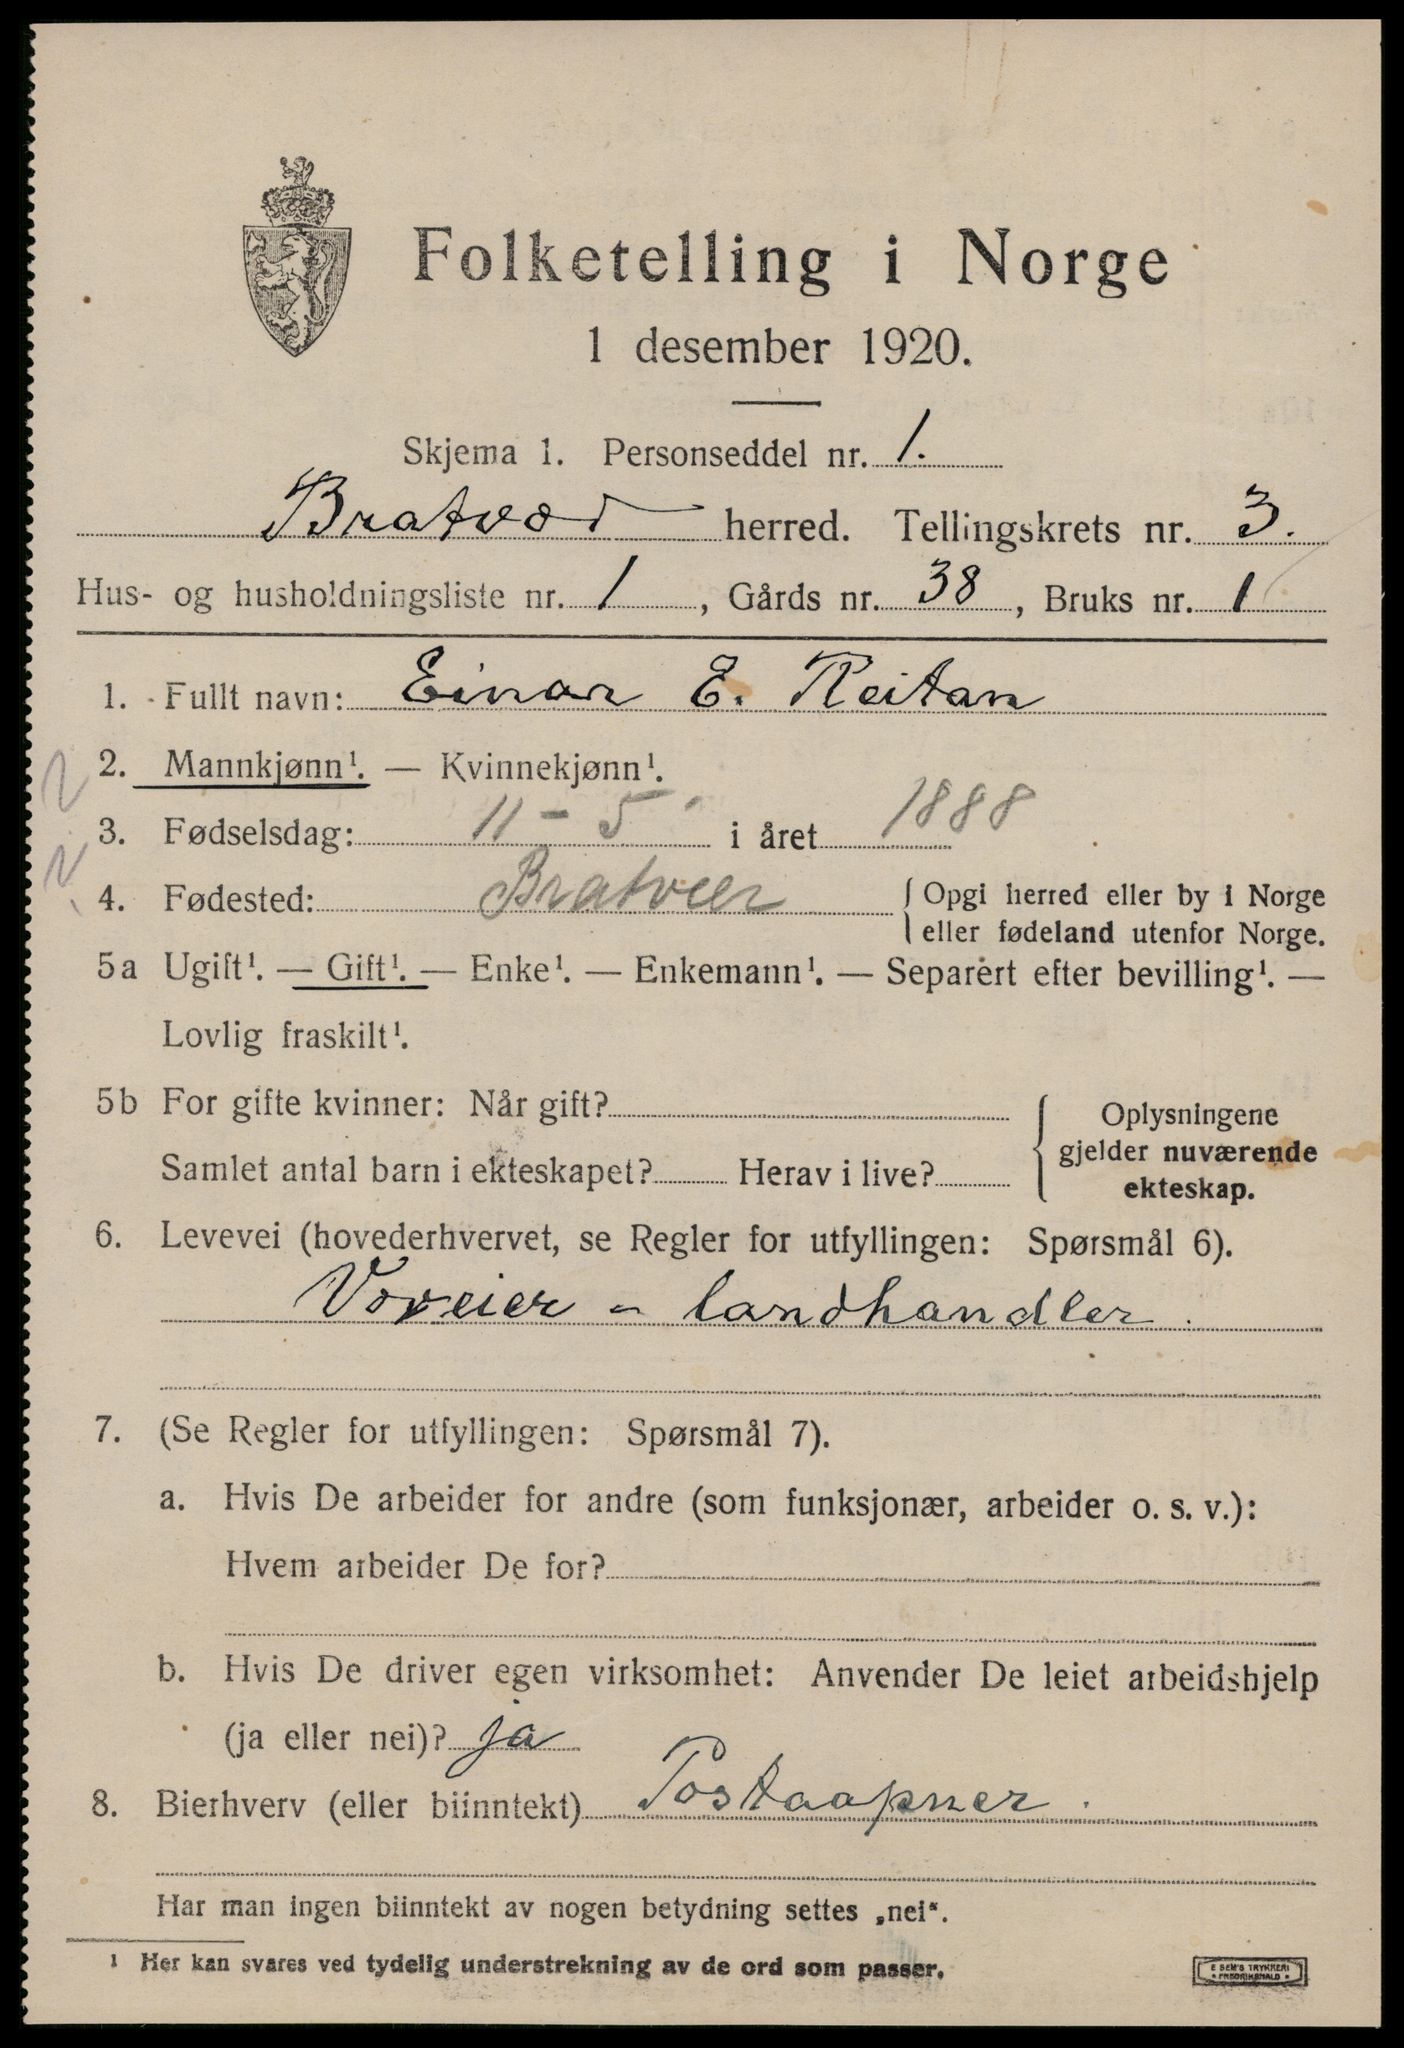 Folketelling i Norge
1 desember 1920.
Skjema 1. Personseddel nr. 1.
Bratvær herred. Tellingskrets nr. 3.
Hus- og husholdningsliste nr. 1, Gårds nr. 38, Bruks nr. 1
1. Fullt navn: Einar E. Reitan
2. Mannkjønn¹. — Kvinnekjønn¹.
3. Fødselsdag: 11 - 5 i året 1888
4. Fødested: Bratvær
Opgi herred eller by i Norge
eller fødeland utenfor Norge.
5a Ugift¹. — Gift¹. — Enke¹. — Enkemann¹. — Separert efter bevilling¹. —
Lovlig fraskilt¹.
5b For gifte kvinner: Når gift?
Samlet antal barn i ekteskapet? Herav i live?
Oplysningene
gjelder nuværende
ekteskap.
6. Levevei (hovederhvervet, se Regler for utfyllingen: Spørsmål 6).
Væreier - landhandler.
7. (Se Regler for utfyllingen: Spørsmål 7).
a. Hvis De arbeider for andre (som funksjonær, arbeider o. s. v.):
Hvem arbeider De for?
b. Hvis De driver egen virksomhet: Anvender De leiet arbeidshjelp
(ja eller nei)? ja
8. Bierhverv (eller biinntekt) Postaapner.
Har man ingen biinntekt av nogen betydning settes „nei“.
¹ Her kan svares ved tydelig understrekning av de ord som passer.
E SEM'S TRYKKERI
FREDRIKSHALD